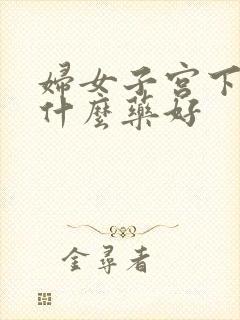 婦女子宮下
什麼藥好
金尋者